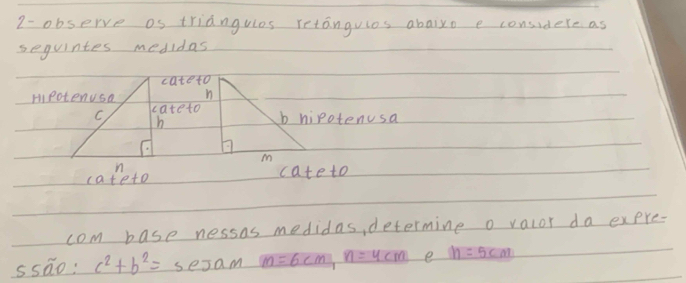 2- observe os triângulos retângulos abaixo e considere as
seguintes medidas
cateto
Hipotenusa
h
cateto
c
h
b hipotenusa
n
m
cateto
cateto
com base nessas medidas, determine o valor da expre-
ssão: c²+b²= sejam m=6cm, n=4cm e h=5cm